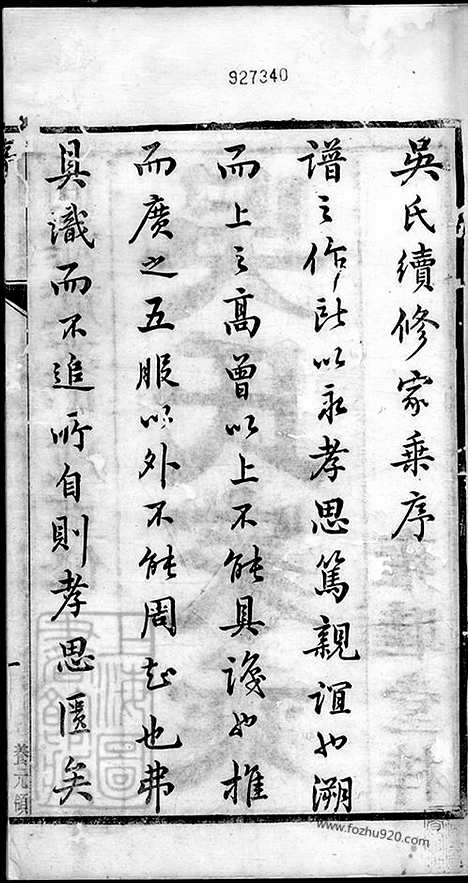 927340
吳氏續修家乘序
譜之作所以永孝思篤親誼也溯
而上之高曾以上不能具識也推
而廣之五服以外不能周知也弗
具識而不追所自則孝思匱矣
養元領
www.fozhu920.com